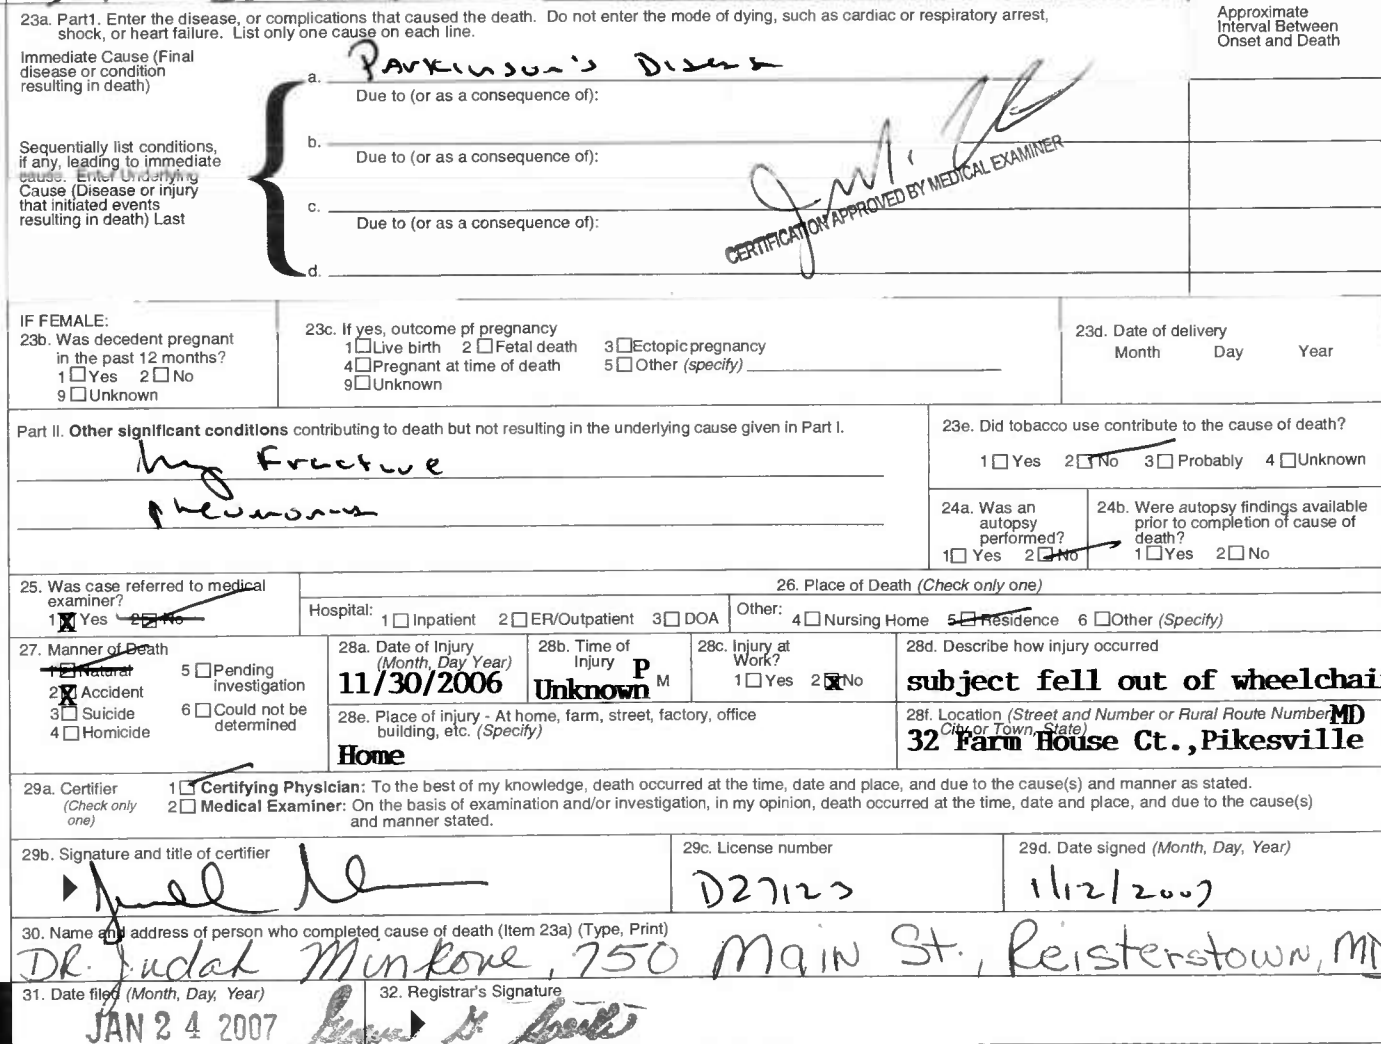 23a. Part1. Enter the disease, or complications that caused the death. Do not enter the mode of dying, such as cardiac or respiratory arrest,
shock, or heart failure. List only one cause on each line.
Approximate
Interval Between
Onset and Death
Immediate Cause (Final
disease or condition
resulting in death)
a. Parkinson's Disease
Due to (or as a consequence of):
Sequentially list conditions,
if any, leading to immediate
cause. Enter Underlying
Cause (Disease or injury
that initiated events
resulting in death) Last
b.
Due to (or as a consequence of):
c.
Due to (or as a consequence of):
d.
CERTIFICATION APPROVED BY MEDICAL EXAMINER
IF FEMALE:
23b. Was decedent pregnant
in the past 12 months?
1 ☐ Yes 2 ☐ No
9 ☐ Unknown
23c. If yes, outcome pf pregnancy
1 ☐ Live birth 2 ☐ Fetal death 3 ☐ Ectopic pregnancy
4 ☐ Pregnant at time of death 5 ☐ Other (specify)
9 ☐ Unknown
23d. Date of delivery
Month Day Year
Part II. Other significant conditions contributing to death but not resulting in the underlying cause given in Part I.
Fracture
pneumonia
23e. Did tobacco use contribute to the cause of death?
1 ☐ Yes 2 ☑ No 3 ☐ Probably 4 ☐ Unknown
24a. Was an
autopsy
performed?
1 ☐ Yes 2 ☑ No
24b. Were autopsy findings available
prior to completion of cause of
death?
1 ☐ Yes 2 ☐ No
25. Was case referred to medical
examiner?
1 X Yes 2 ☑ No
26. Place of Death (Check only one)
Hospital: 1 ☐ Inpatient 2 ☐ ER/Outpatient 3 ☐ DOA
Other: 4 ☐ Nursing Home 5 ☑ Residence 6 ☐ Other (Specify)
27. Manner of Death
1 ☑ Natural
2 X Accident
3 ☐ Suicide
4 ☐ Homicide
5 ☐ Pending
investigation
6 ☐ Could not be
determined
28a. Date of Injury
(Month, Day Year)
11/30/2006
28b. Time of
Injury P
Unknown M
28c. Injury at
Work?
1 ☐ Yes 2 X No
28d. Describe how injury occurred
subject fell out of wheelchai
28e. Place of injury - At home, farm, street, factory, office
building, etc. (Specify)
Home
28f. Location (Street and Number or Rural Route Number
City or Town, State) MD
32 Farm House Ct.,Pikesville
29a. Certifier
(Check only
one)
1 ☑ Certifying Physician: To the best of my knowledge, death occurred at the time, date and place, and due to the cause(s) and manner as stated.
2 ☐ Medical Examiner: On the basis of examination and/or investigation, in my opinion, death occurred at the time, date and place, and due to the cause(s)
and manner stated.
29b. Signature and title of certifier
29c. License number
D27123
29d. Date signed (Month, Day, Year)
1/12/2007
30. Name and address of person who completed cause of death (Item 23a) (Type, Print)
DR. Judah Minkove, 750 Main St., Reisterstown, MD
31. Date filed (Month, Day, Year)
JAN 24 2007
32. Registrar's Signature